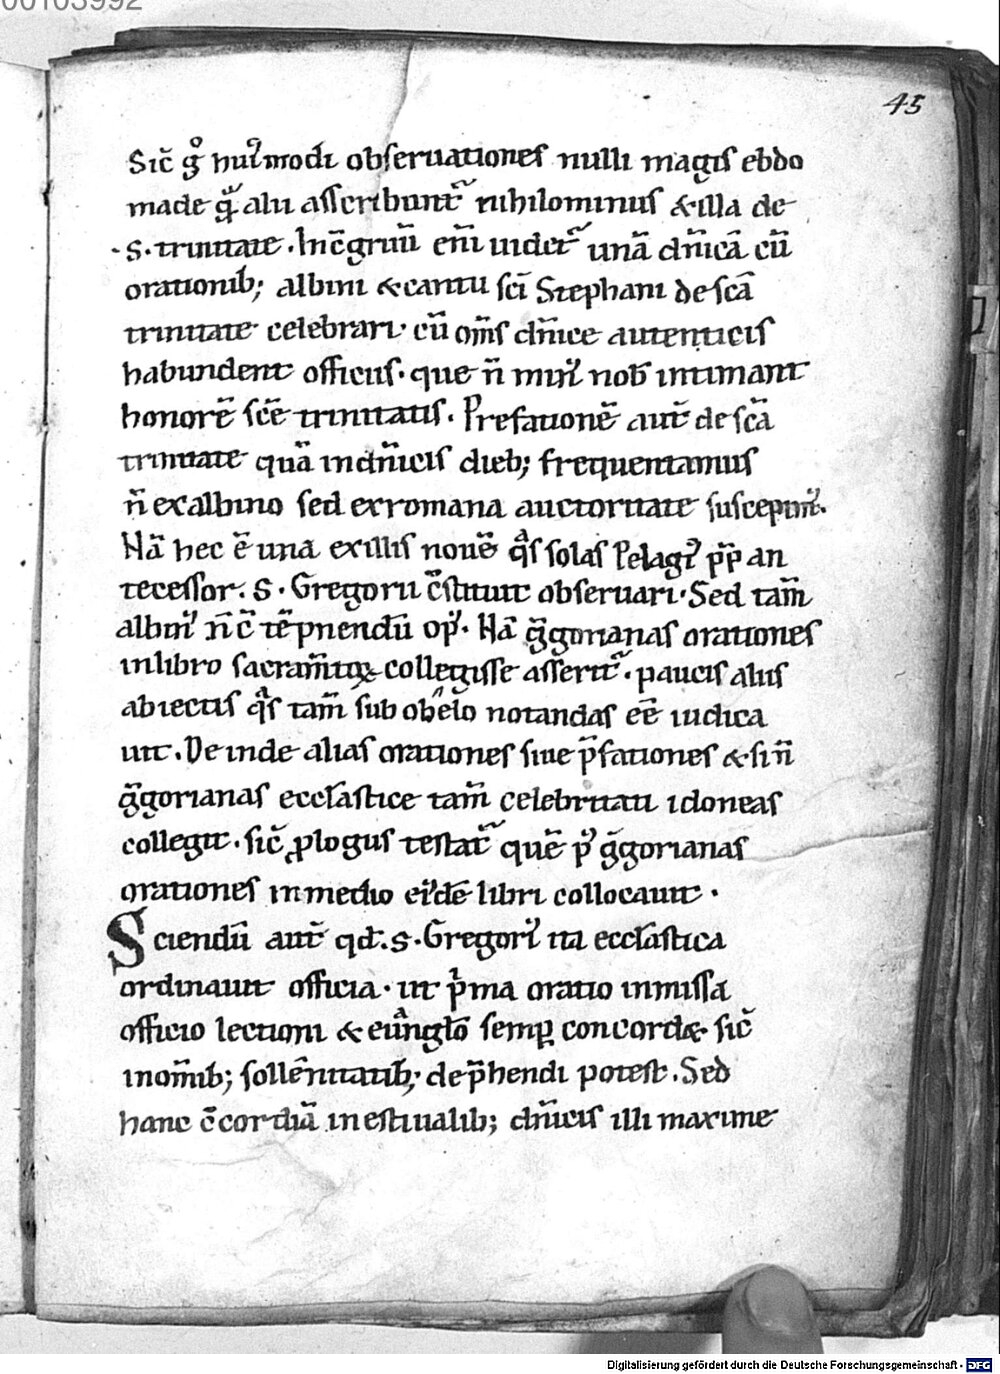 00103992
45
Sic̄ gͦ hui᾽modi obseruationes nulli magis ebdo
made qͣ alii asscribunt᷑ nihilominus & illa de
·s·trinitate. Incͨgruū eni̅ uidet᷑ unā dn̄icā cū
orationib; albini & cantu sc̄i Stephani de scā
trinitate celebrari· cū om̄s dn̄ice autenticis
habundent officiis· que n̄ min᾽ nob̄ intimant
honorē sc̄e trinitatis. Prefationē aut̄ de scā
trinitate quā in dn̄icis dieb; frequentamus
n̄ ex albino sed ex romana auctoritate suscepim᾽.
Nā hec ē una ex illis nouē qͣs solas Pelagi᾽ pp̄ an
tecessor. S. Gregorii c̄stituit obseruari· Sed tam̄
albin᾽ n̄ c̄tēpnendū op᾽. Nā ḡgorianas orationes
in libro sacram̄toꝝ collegisse asserit᷑. paucis aliis
abiectis qͣs tam̄ sub obelo notandas eē iudica
uit. Deinde alias orationes siue p̄fationes & si n̄
ḡgorianas ecclasticę tam̄ celebritati idoneas
collegit. sic̄ ꝓlogus testat᷑ quē p᾽ ḡgorianas
orationes in medio ei᾽dē libri collocauit ·
Sciendū aut̄ qđ·s·Gregori᾽ ita ecclastica
ordinauit officia· ut pͥma oratio in missa
officio lectioni & euͣngl̄o semꝑ concord&· sic̄
in om̄ib; sollēnitatib; dep̄hendi potest. Sed
hanc c̄cordiā in estiualib; dn̄icis illi maxime
Digitalisierung gefördert durch die Deutsche Forschungsgemeinschaft - DFG